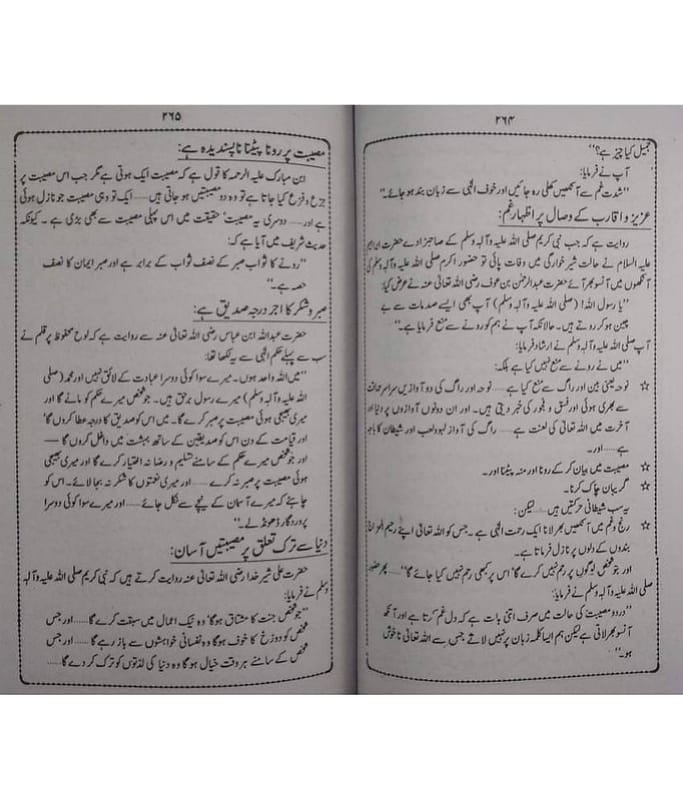 ۲۶۴
جمیل کیا چیز ہے؟''
آپ نے فرمایا:
''شدت غم سے آنکھیں کھلی رہ جائیں اور خوف الٰہی سے زبان بند ہو جائے۔''
عزیز و اقارب کے وصال پر اظہار غم:
روایت ہے کہ جب نبی کریم صلی اللہ علیہ وآلہ وسلم کے صاحبزادے حضرت ابراہیم
علیہ السلام نے حالت شیر خوارگی میں وفات پائی تو حضور اکرم صلی اللہ علیہ وآلہ وسلم کی
آنکھوں میں آنسو بھر آئے حضرت عبدالرحمٰن بن عوف رضی اللہ تعالیٰ عنہ نے عرض کیا:
''یا رسول اللہ! (صلی اللہ علیہ وآلہ وسلم) آپ بھی ایسے صدمات سے بے
چین ہو کر روتے ہیں۔ حالانکہ آپ نے ہم کو رونے سے منع فرمایا ہے۔''
آپ صلی اللہ علیہ وآلہ وسلم نے ارشاد فرمایا:
''میں نے رونے سے منع نہیں کیا ہے بلکہ:
☆ نوحہ یعنی بین اور راگ سے منع کیا ہے ...... نوحہ اور راگ کی دو آوازیں سراسر حماقت
سے بھری ہوئی اور فسق و فجور کی خبر دیتی ہیں۔ اور ان دونوں آوازوں پر دنیا اور
آخرت میں اللہ تعالیٰ کی لعنت ہے ...... راگ کی آواز لہو و لعب اور شیطان کا باجہ
ہے ...... اور۔
☆ مصیبت میں بیان کر کے رونا اور منہ پیٹنا اور۔
☆ گریبان چاک کرنا۔
یہ سب شیطانی حرکتیں ہیں ...... لیکن:
☆ رنج و غم میں آنکھیں بھر لانا ایک رحمت الٰہی ہے ۔ جس کو اللہ تعالیٰ اپنے رحیم المزاج
بندوں کے دلوں پر نازل فرماتا ہے۔
اور جو شخص لوگوں پر رحم نہیں کرے گا' اس پر کبھی رحم نہیں کیا جائے گا'' ...... پھر حضور
صلی اللہ علیہ وآلہ وسلم نے فرمایا:
''درد و مصیبت کی حالت میں صرف اتنی بات ہے کہ دل غم کرتا ہے اور آنکھ
آنسو بھر لاتی ہے لیکن ہم ایسا کلمہ زبان پر نہیں لاتے جس سے اللہ تعالیٰ ناخوش
ہو۔''
۲۶۵
مصیبت پر رونا پیٹنا ناپسندیدہ ہے:
ابن مبارک علیہ الرحمہ کا قول ہے کہ مصیبت ایک ہوتی ہے مگر جب اس مصیبت پر
جزع و فزع کیا جاتا ہے تو وہ دو مصیبتیں ہو جاتی ہیں ...... ایک تو وہی مصیبت جو نازل ہوئی
ہے اور ...... دوسری یہ مصیبت' حقیقت میں اس پہلی مصیبت سے بھی بڑی ہے ۔ کیونکہ
حدیث شریف میں آیا ہے کہ:
''رونے کا ثواب صبر کے نصف ثواب کے برابر ہے اور صبر ایمان کا نصف
حصہ ہے۔''
صبر و شکر کا اجر درجہ صدیق ہے:
حضرت عبداللہ ابن عباس رضی اللہ تعالیٰ عنہ سے روایت ہے کہ لوح محفوظ پر قلم نے
سب سے پہلے حکم الٰہی سے یہ لکھا تھا:
''میں اللہ واحد ہوں۔ میرے سوا کوئی دوسرا عبادت کے لائق نہیں اور محمد (صلی
اللہ علیہ وآلہ وسلم) میرے رسول برحق ہیں۔ جو شخص میرے حکم کو مانے گا اور
میری بھیجی ہوئی مصیبت پر صبر کرے گا۔ میں اس کو صدیق کا درجہ عطا کروں گا'
اور قیامت کے دن اس کو صدیقین کے ساتھ بہشت میں داخل کروں گا —
اور جو شخص میرے حکم کے سامنے تسلیم و رضا نہ اختیار کرے گا اور میری بھیجی
ہوئی مصیبت پر صبر نہ کرے ...... اور میری نعمتوں کا شکر نہ بجا لائے۔ اس کو
چاہئے کہ میرے آسمان کے نیچے سے نکل جائے ...... اور میرے سوا کوئی دوسرا
پروردگار ڈھونڈ لے۔''
دنیا سے ترک تعلق پر مصیبتیں آسان:
حضرت علی شیر خدا رضی اللہ تعالیٰ عنہ روایت کرتے ہیں کہ نبی کریم صلی اللہ علیہ وآلہ
وسلم نے فرمایا:
''جو شخص جنت کا مشتاق ہوگا' وہ نیک اعمال میں سبقت کرے گا ...... اور جس
شخص کو دوزخ کا خوف ہوگا وہ نفسانی خواہشوں سے باز رہے گا ...... اور جس
شخص کے سامنے ہر وقت خیال ہوگا وہ دنیا کی لذتوں کو ترک کر دے گا ......